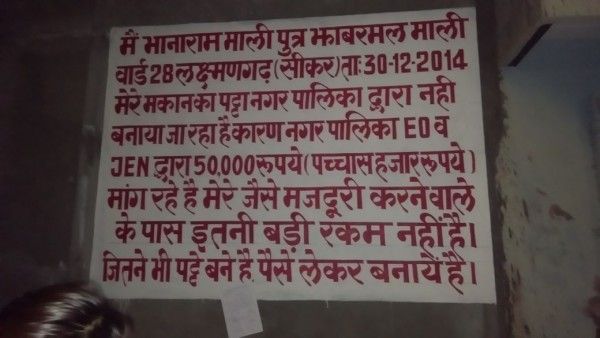 मैं भानाराम माली पुत्र झाबरमल माली
वार्ड 28 लक्ष्मणगढ़ (सीकर) ता: 30-12-2014
मेरे मकान का पट्टा नगर पालिका द्वारा नही
बनाया जा रहा है कारण नगर पालिका EO व
JEN द्वारा 50,000 रूपये (पच्चास हजार रूपये)
मांग रहे है मेरे जैसे मजदूरी करने वाले
के पास इतनी बड़ी रकम नहीं है।
जितने भी पट्टे बने है पैसें लेकर बनायें है।